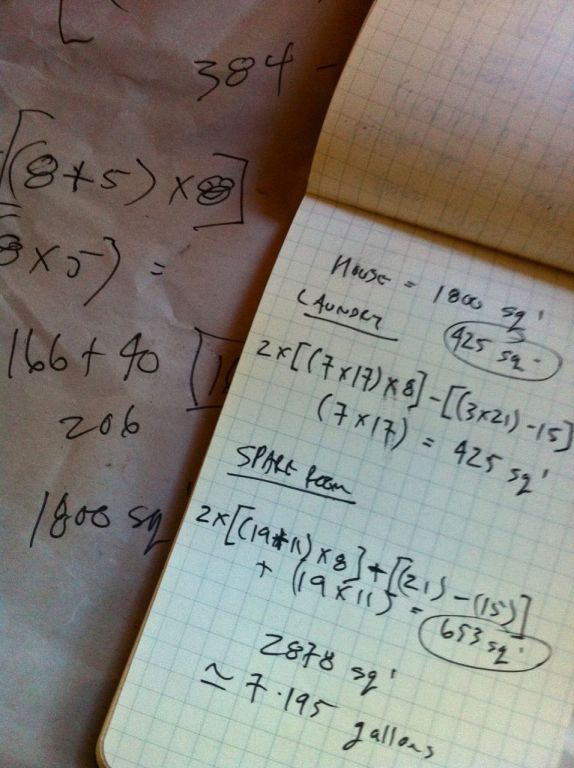 384 -
[(8+5) × 8]
8 × 5) =
166 + 40
206
1800 sq'
HOUSE = 1800 sq'
LAUNDRY
425 sq'
2×[(7×17)×8] - [(3×21) - 15]
(7×17) = 425 sq'
SPARE ROOM
2×[(19+11)×8] + [(21) - (15)]
+ (19×11) = 653 sq'
2878 sq'
≃ 7.195 gallons